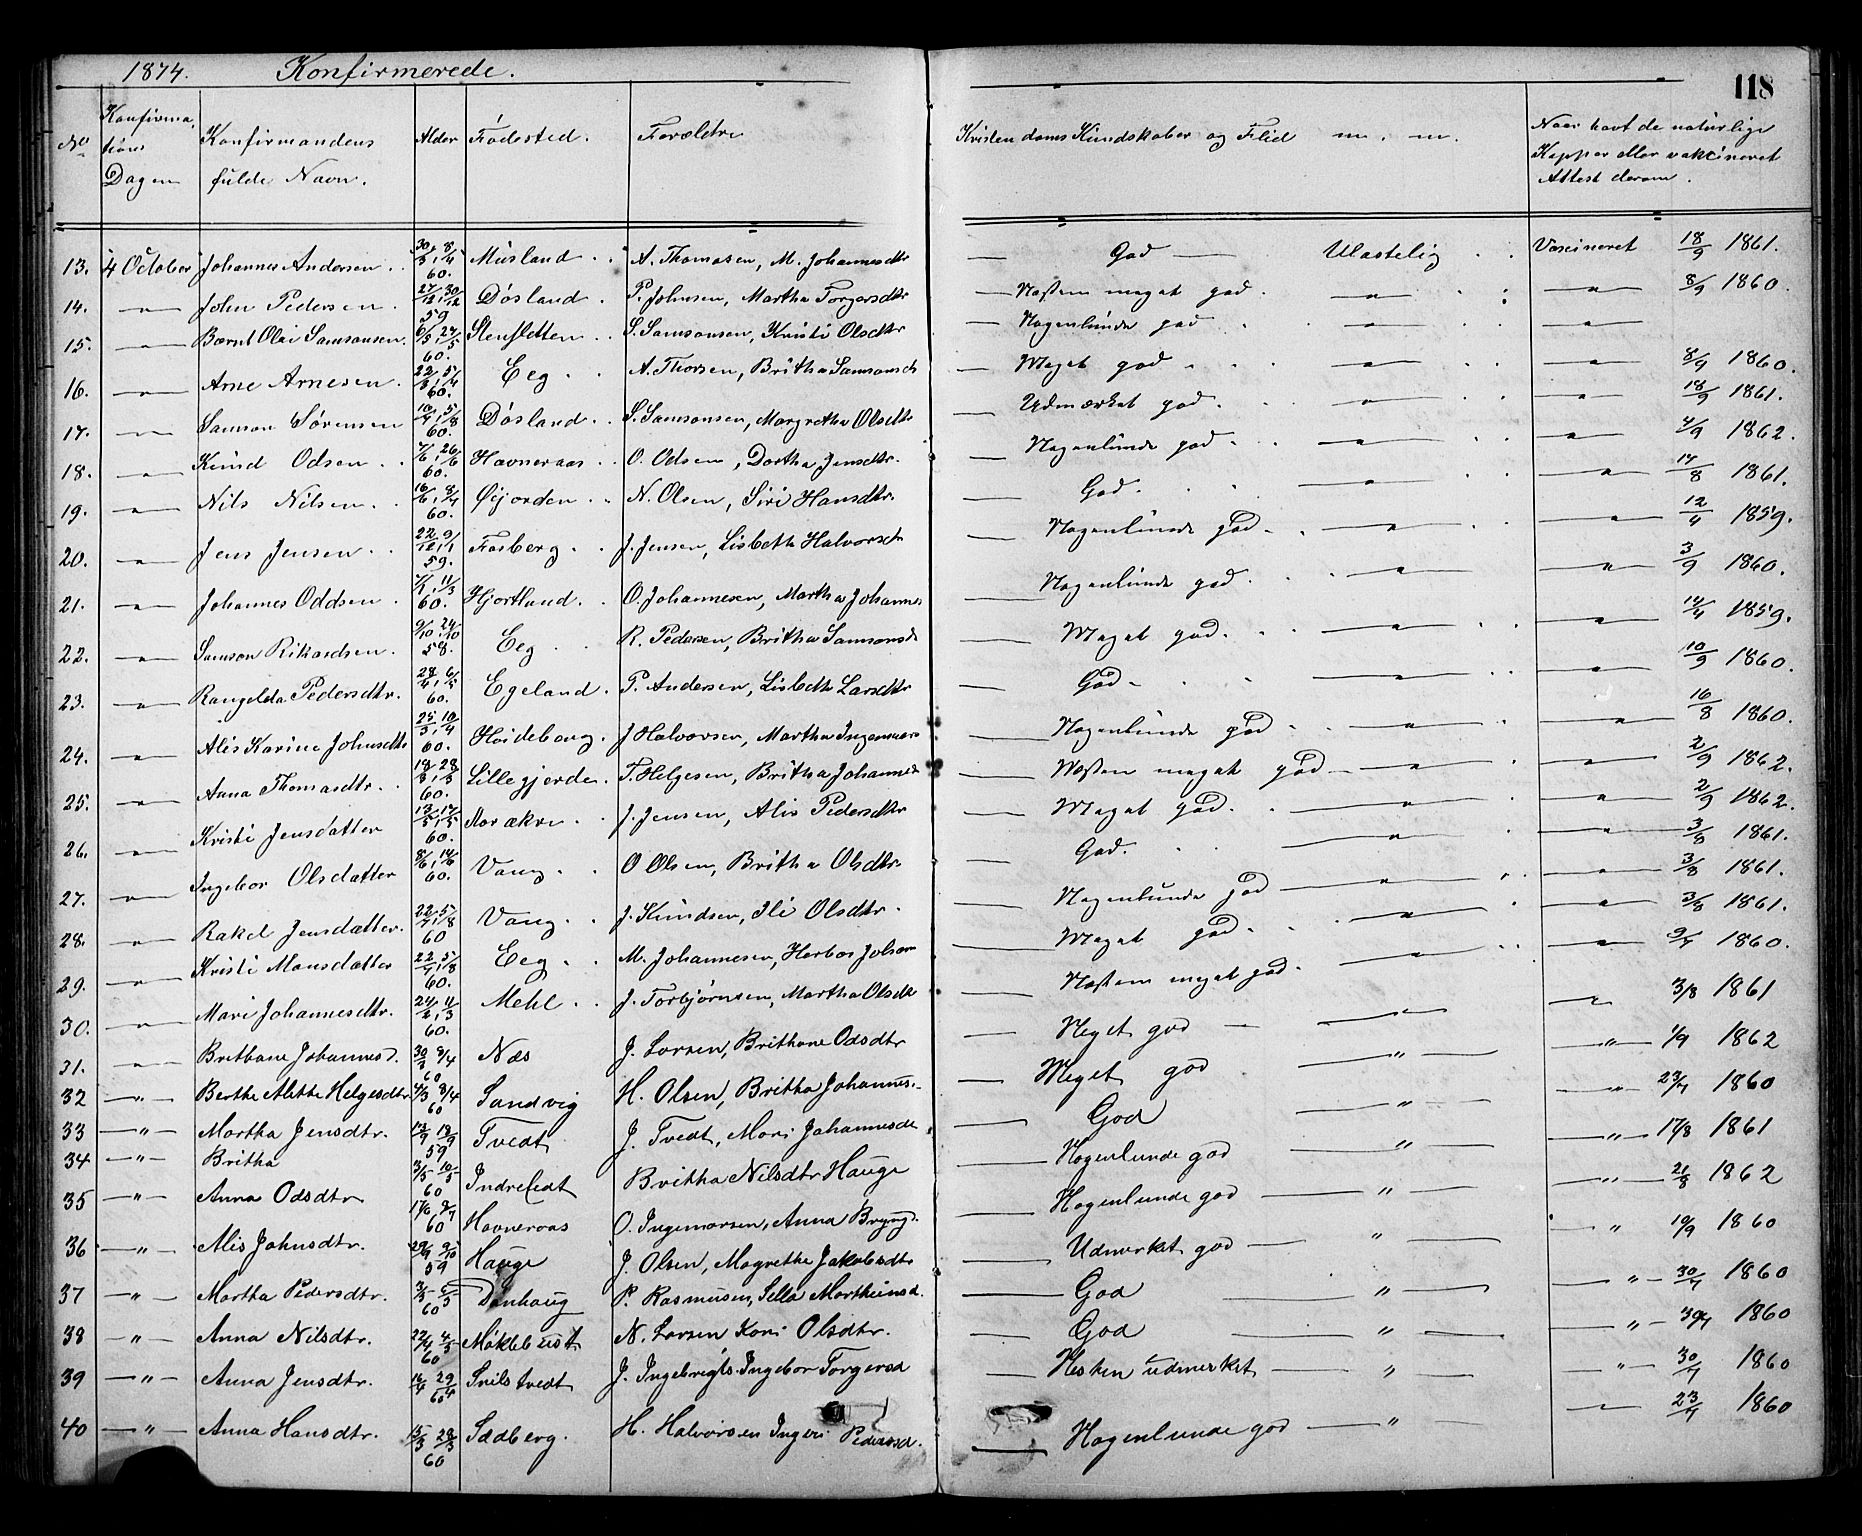 1874. Konfirmerede.
118
No Konfirmations Dagen Konfirmandens fulde Navn. Alder Fødested. Forældre Kristendoms Kundskaber og Flid m. m. Naar havt de naturlige Kopper eller vakcineret Attest derom.
13. 4 October Johannes Andersen 60. Musland A. Thomasen, M. Johannesdtr God Ulastelig Vaccineret 18/9 1861.
14. " John Pedersen 27/12, 30/12 59 Døsland P. Johnsen, Martha Torgersdtr Næsten meget god " " 8/9 1860.
15. " Bærnt Olai Samsonsen 60. Stensletten S. Samsonsen, Kristi Olsdtr Nogenlunde god " "
16. " Arne Arnesen 60. Eeg A. Thorsen, Britha Samsonsdt Meget god " " 8/9 1860.
17. " Samson Sørensen 60. Døsland S. Samsonsen, Margretha Olsdtr Udmærket god " " 18/9 1861.
18. " Knud Odsen 60. Havneraas O. Odsen, Dortha Jensdtr. Nogenlunde god " " 4/9 1862.
19. " Nils Nilsen 60. Øijorden N. Olsen, Siri Hansdtr. God. " " 17/8 1861.
20. " Jens Jensen 22/12, 9/1 59. Fosberg J. Jensen, Lisbeth Halvorsdt Nogenlunde god " " 12/4 1859.
21. " Johannes Oddsen 60. Hjortland O. Johannesen, Martha Johannes Nogenlunde god. " " 3/9 1860.
22. " Samson Rikardsen 9/10, 24/10 58. Eeg R. Pedersen, Britha Samsonsdt Meget god. " " 14/4 1859.
23. " Rangelda Pedersdtr. 60. Egeland P. Andersen, Lisbeth Larsdtr God " " 10/9 1860.
24. " Alis Karine Johnsdtr 60. Høideborg J Halvorsen, Martha Ingemars Nogenlunde god " " 16/8 1860.
25. " Anna Thomasdtr. 60. Lillegjerde T. Helgesen, Britha Johannesd Næsten meget god " " 2/9 1862.
26. " Kristi Jensdatter 60. J. Jensen, Alis Pedersdtr Meget god. " " 2/9 1862.
27. " Ingebor Olsdatter 60. Vang O Olsen, Britha Olsdtr. God. " " 3/8 1861.
28. " Rakel Jensdatter. 60 Vang J. Knudsen, Ili Olsdtr. Nogenlunde god " " 3/8 1861.
29. " Kristi Monsdatter 60. Eeg M. Johannesen, Herbor Meget god. " " 3/8 1861.
30. " Mari Johannesdtr. 60. Mehl J. Torbjørnsen, Martha Olsdtr Næsten meget god. " " 1860.
31. " Brithane Johannesd. 60 Næs J. Larsen, Brithane Odsdtr Meget god " " 3/8 1861
32 " Berthe Alethe Helgesdtr 60 Sandvig H. Olsen, Britha Johannes. Meget god " " 1/9 1862
33 " Martha Jensdtr. 59 Tvedt J. Tvedt, Mari Johannesdt God " " 1860
34 " Britha 60 Indrelidt Britha Nilsdtr Hauge Nogenlunde god " " 17/8 1861
35 " Anna Odsdtr 60 Havneraas O. Ingemarsen, Anna Bryng. Nogenlunde god " " 21/8 1862
36 " Alis Johnsdtr. 59 Hauge J. Olsen, Magrethe Jakobsdtr Udmerket god " " 19/9 1860
37 " Martha Pedersdtr. 60 Danhaug P. Rasmusen, Sella Martheinsd. God " " 1860
38 " Anna Nilsdtr. 60 Møklebust N. Larsen Kari Olsdtr. God " " 1860
39 " Anna Jensdtr. 60 Snilstvedt J. Ingebrigts Ingebor Torgersd Nesten udmerket " " 1860
40 " Anna Hansdtr. 60 Sædberg. H. Halvorsen Ingeri Pedersd. Nogenlunde god " 1860